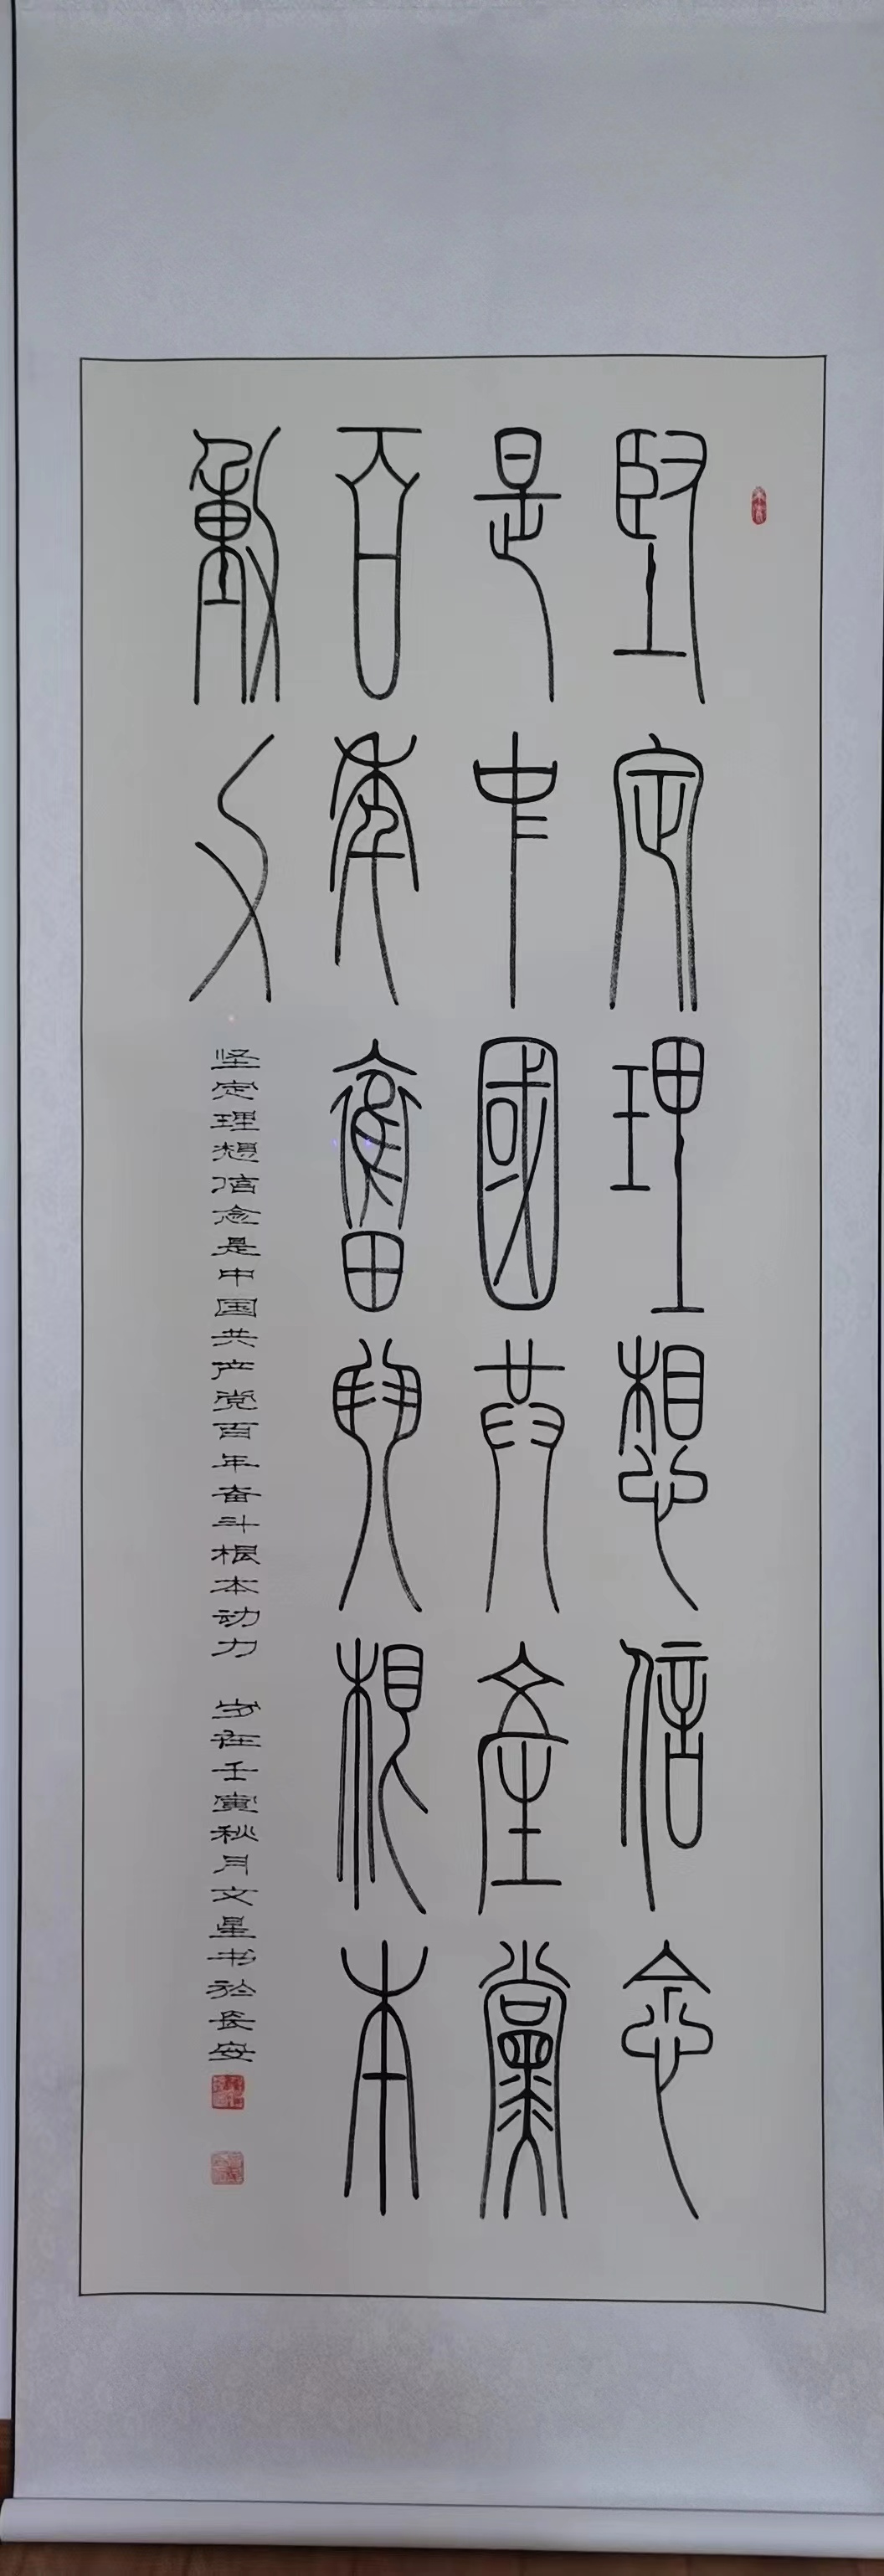 堅定理想信念
是中國共產黨
百年奮鬥根本
動力
坚定理想信念是中国共产党百年奋斗根本动力 岁在壬寅秋月文星书於長安